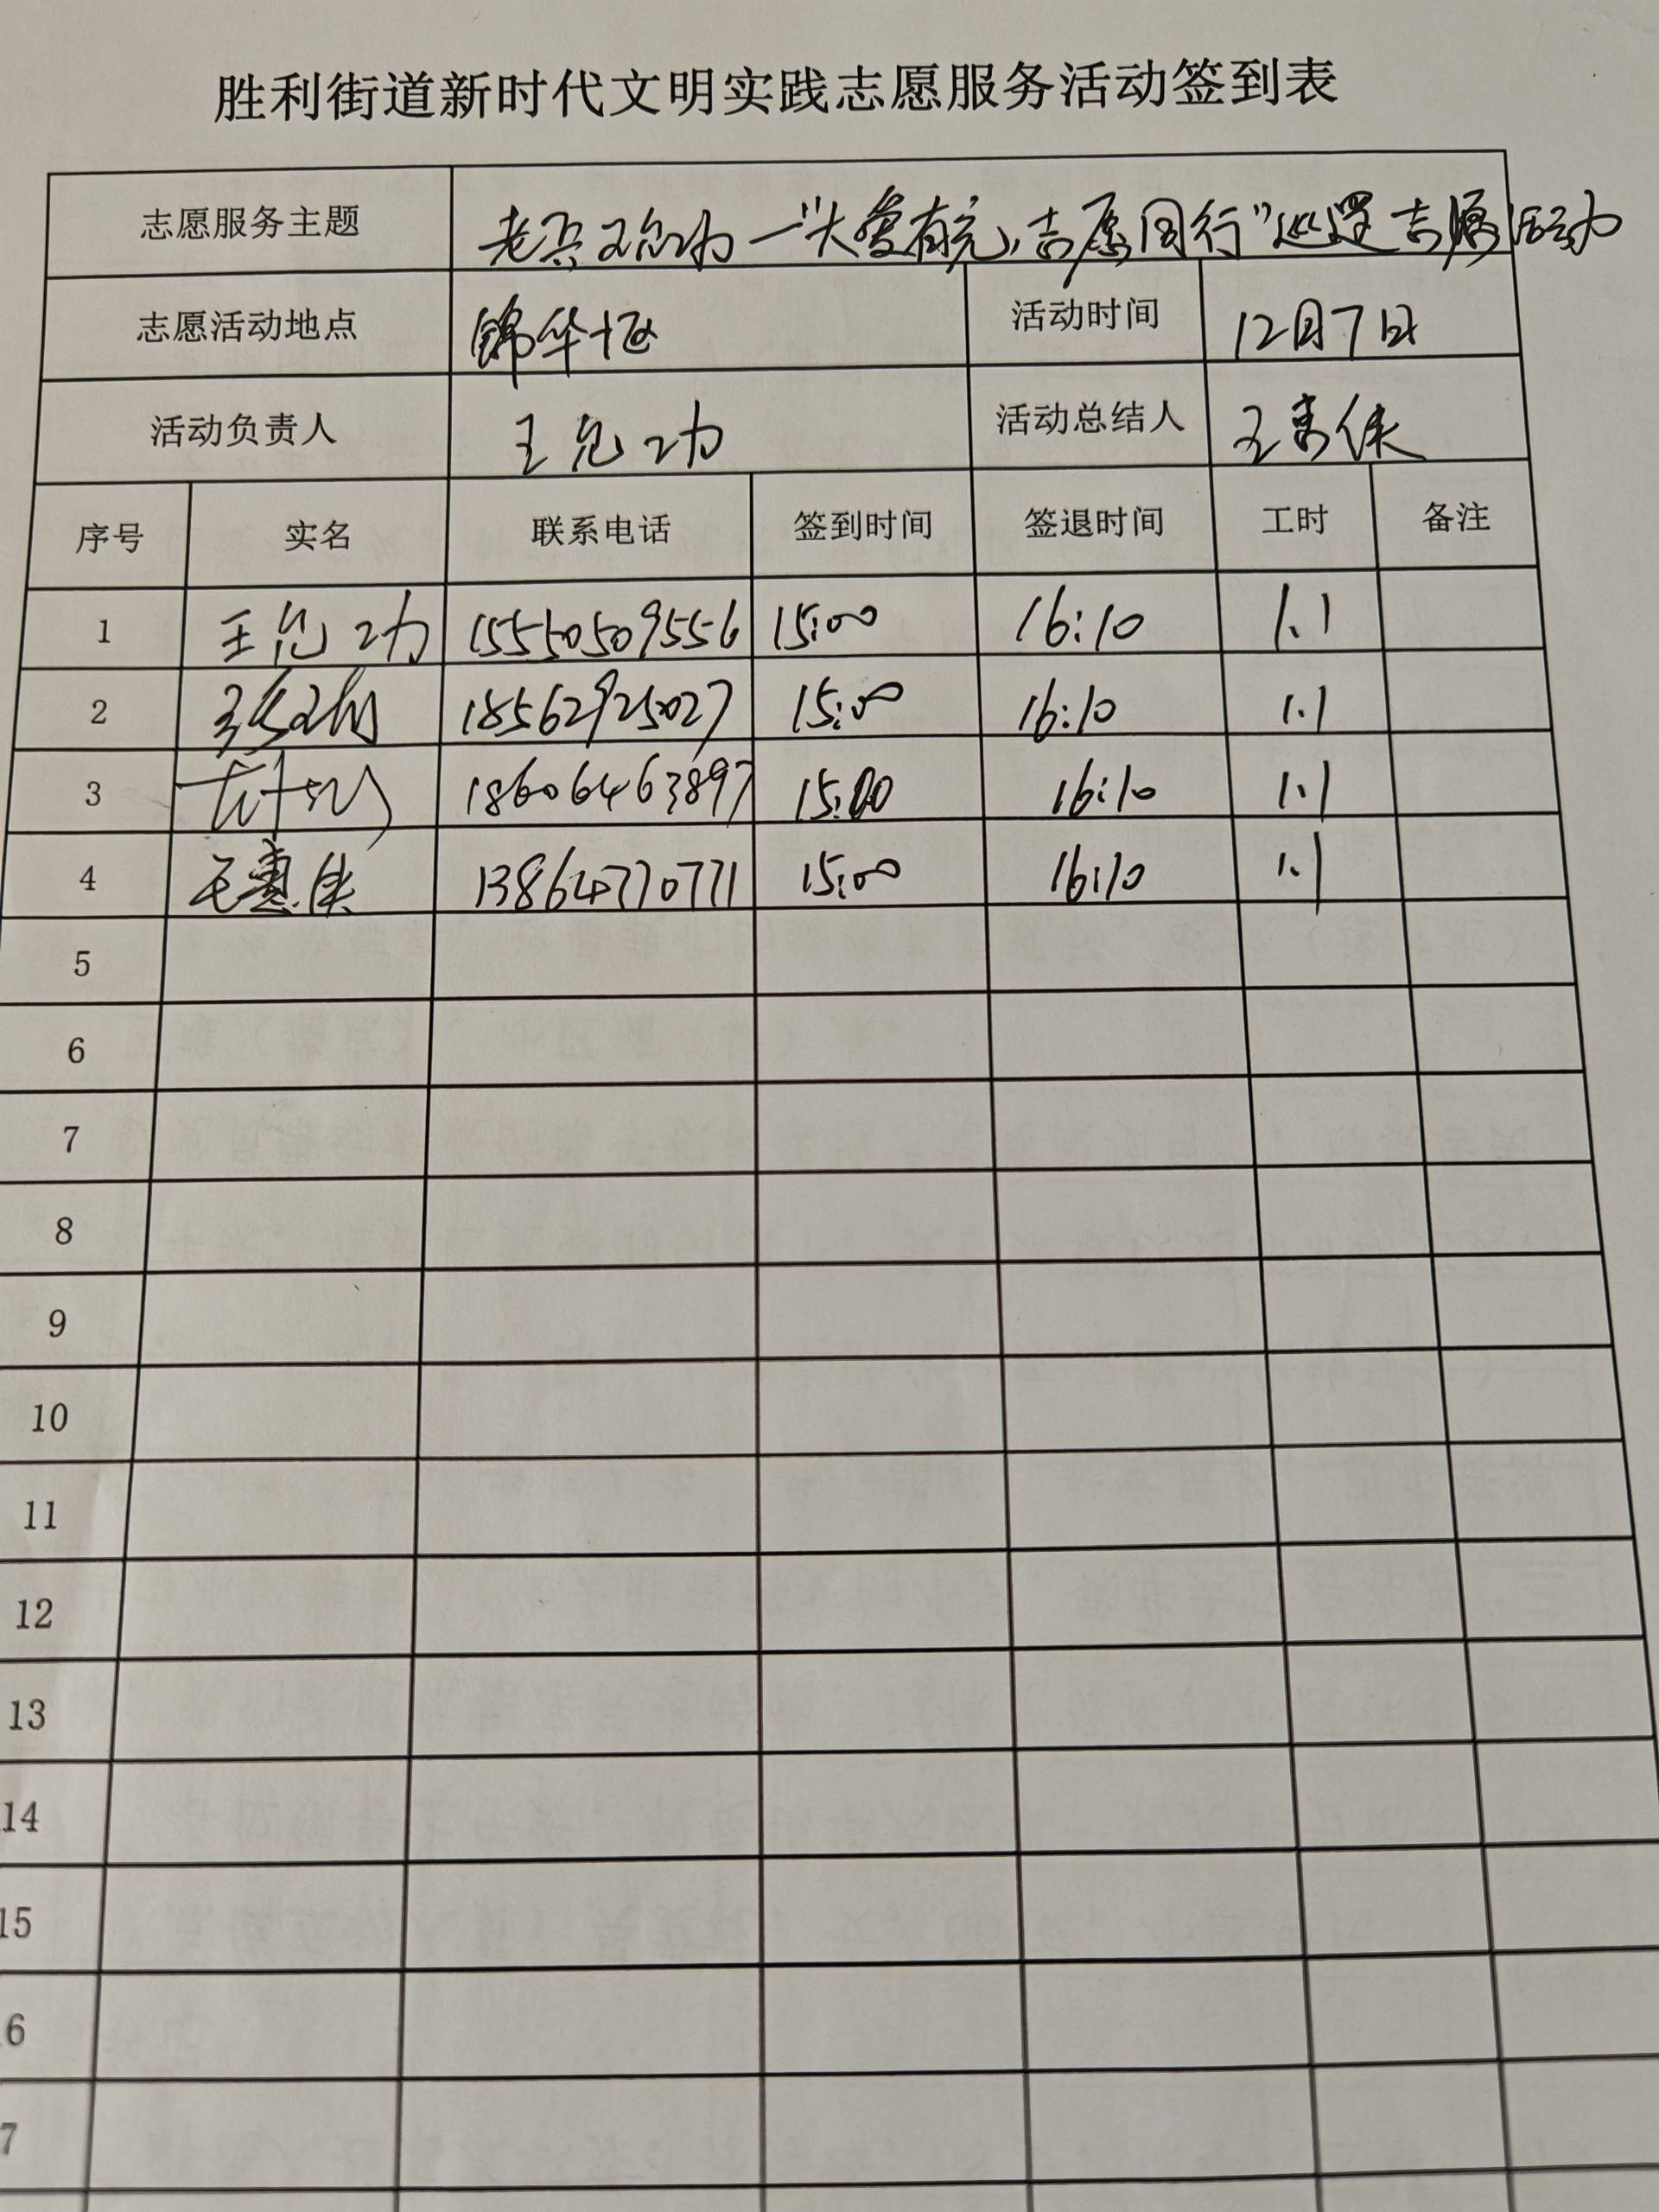 胜利街道新时代文明实践志愿服务活动签到表
志愿服务主题 老兵王允功一"大爱有完,志愿同行"巡逻志愿活动
志愿活动地点 锦华 活动时间 12月7日
活动负责人 王允功 活动总结人 王惠侠
序号 实名 联系电话 签到时间 签退时间 工时 备注
1 王允功 15550509556 15:00 16:10 1.1
2 18562925027 15:00 16:10 1.1
3 18606463897 15:00 16:10 1.1
4 王惠侠 13864770771 15:00 16:10 1.1
5
6
7
8
9
10
11
12
13
14
15
6
7